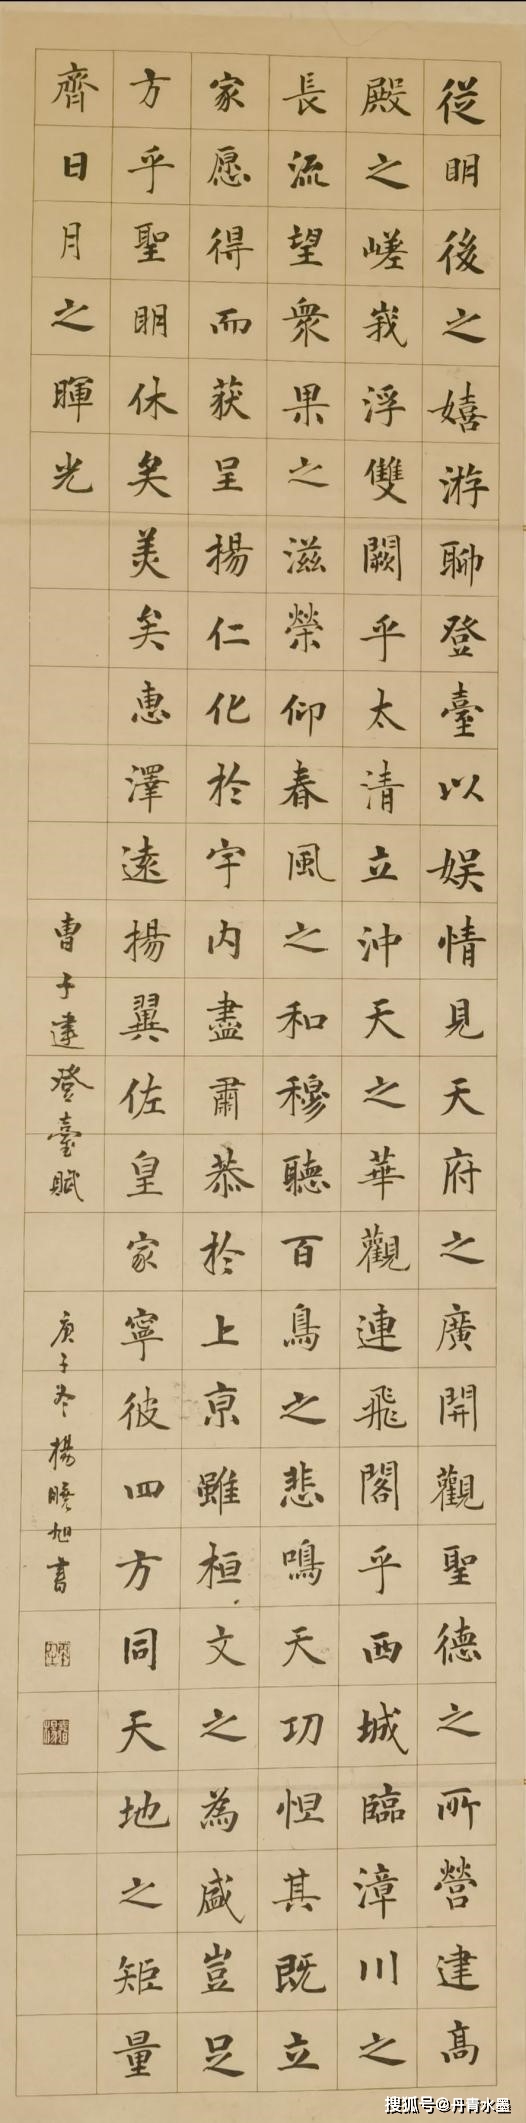 從明後之嬉游聊登臺以娱情見天府之廣開觀聖德之所營建高
殿之嵯峩浮雙闕乎太清立沖天之華觀連飛閣乎西城臨漳川之
長流望衆果之滋榮仰春風之和穆聽百鳥之悲鳴天功怛其既立
家愿得而获呈揚仁化於宇内盡肅恭於上京雖桓文之為盛豈足
方乎聖明休矣美矣惠澤遠揚翼佐皇家寧彼四方同天地之矩量
齊日月之暉光
曹子建登臺賦
庚子冬楊曉旭書
搜狐号@丹青水墨